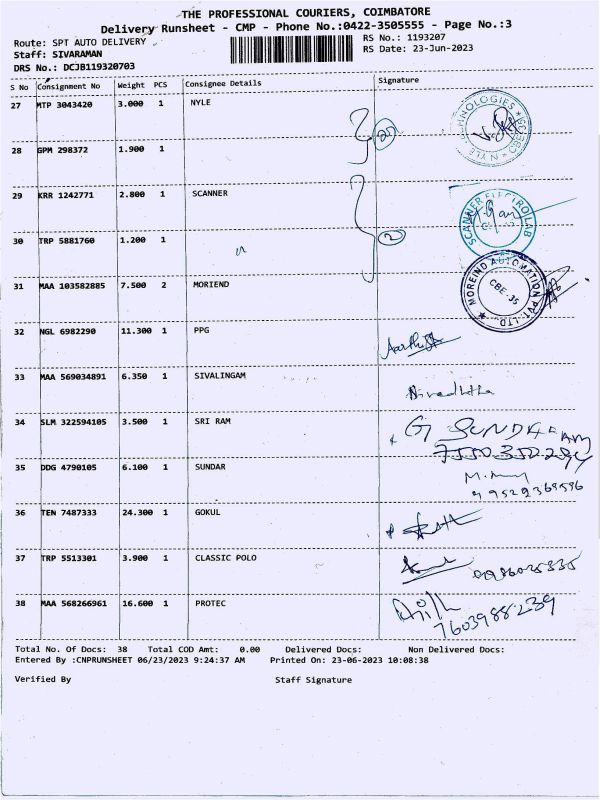 THE PROFESSIONAL COURIERS, COIMBATORE
Delivery Runsheet - CMP - Phone No.:0422-3505555 - Page No.:3
Route: SPT AUTO DELIVERY
RS No.: 1193207
Staff: SIVARAMAN
RS Date: 23-Jun-2023
DRS No.: DCJB119320703
S No Consignment No Weight PCS Consignee Details Signature
27 MTP 3043420 3.000 1 NYLE
28 GPM 298372 1.900 1
29 KRR 1242771 2.800 1 SCANNER
SCANNER ELECTRO LAB
30 TRP 5881760 1.200 1 2
31 MAA 103582885 7.500 2 MORIEND
MOREIND AUTOMATION PVT. LTD. CBE-35
32 NGL 6982290 11.300 1 PPG
33 MAA 569034891 6.350 1 SIVALINGAM
34 SLM 322594105 3.500 1 SRI RAM G SUNDARAM
35 DDG 4790105 6.100 1 SUNDAR
36 TEN 7487333 24.300 1 GOKUL
37 TRP 5513301 3.900 1 CLASSIC POLO
38 MAA 568266961 16.600 1 PROTEC
7603988239
Total No. Of Docs: 38 Total COD Amt: 0.00 Delivered Docs: Non Delivered Docs:
Entered By :CNPRUNSHEET 06/23/2023 9:24:37 AM Printed On: 23-06-2023 10:08:38
Verified By Staff Signature